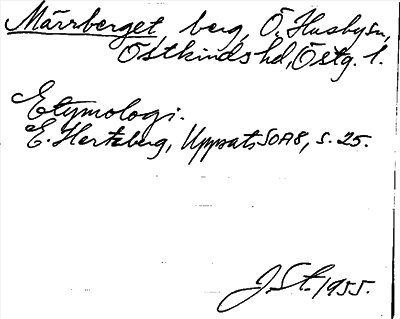 Märrberget, berg, Ö. Husby sn,
Östkinds hd, Östg. l.
Etymologi.
E. Hertzberg, Uppsats SOA8, s. 25.
J. St. 1955.